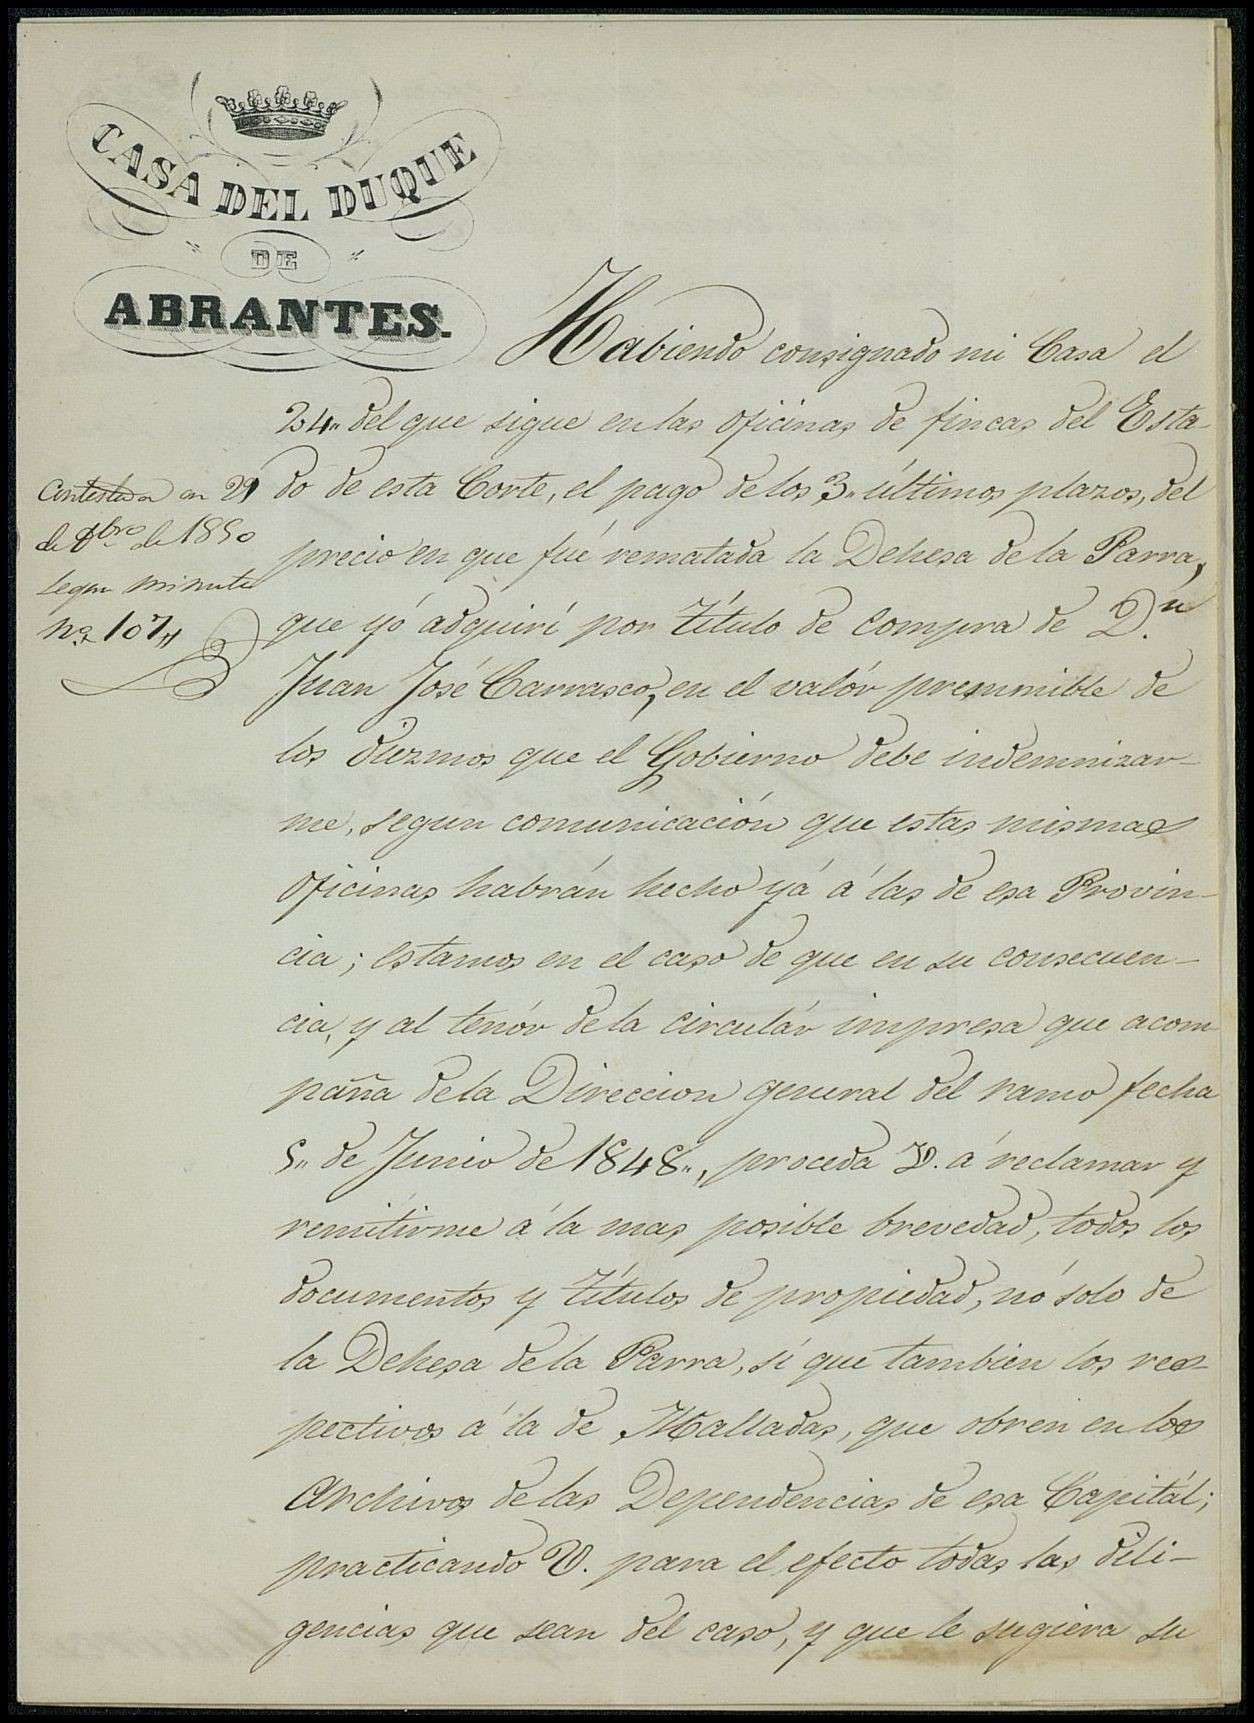 CASA DEL DUQUE
DE
ABRANTES.
Habiendo consignado mi Casa el
24„ del que sigue en las oficinas de fincas del Esta-
do de esta Corte, el pago de los 3„ últimos plazos, del
precio en que fué rematada la Dehesa de la Parra,
que yó adquirí por título de compra de D.n
Juan José Carrasco, en el valór presumible de
los diezmos que el Gobierno debe indemnizar-
me, segun comunicación que estas mismas
oficinas habrán hecho yá á las de esa Provin-
cia; estamos en el caso de que en su consecuen-
cia, y al tenór de la circulár impresa que acom
paña de la Direccion general del ramo fecha
5„ de Junio de 1848„, proceda V. á reclamar y
remitirme á la mas posible brevedad, todos los
documentos y títulos de propiedad, nó solo de
la Dehesa de la Parra, sí que tambien los res-
pectivos á la de Malladas, que obren en los
Archivos de las Dependencias de esa Capitál;
practicando V. para el efecto todas las dili-
gencias que sean del caso, y que le sugiera su
Contestada en 29
de 8bre de 1850
segun minuta
no 107„